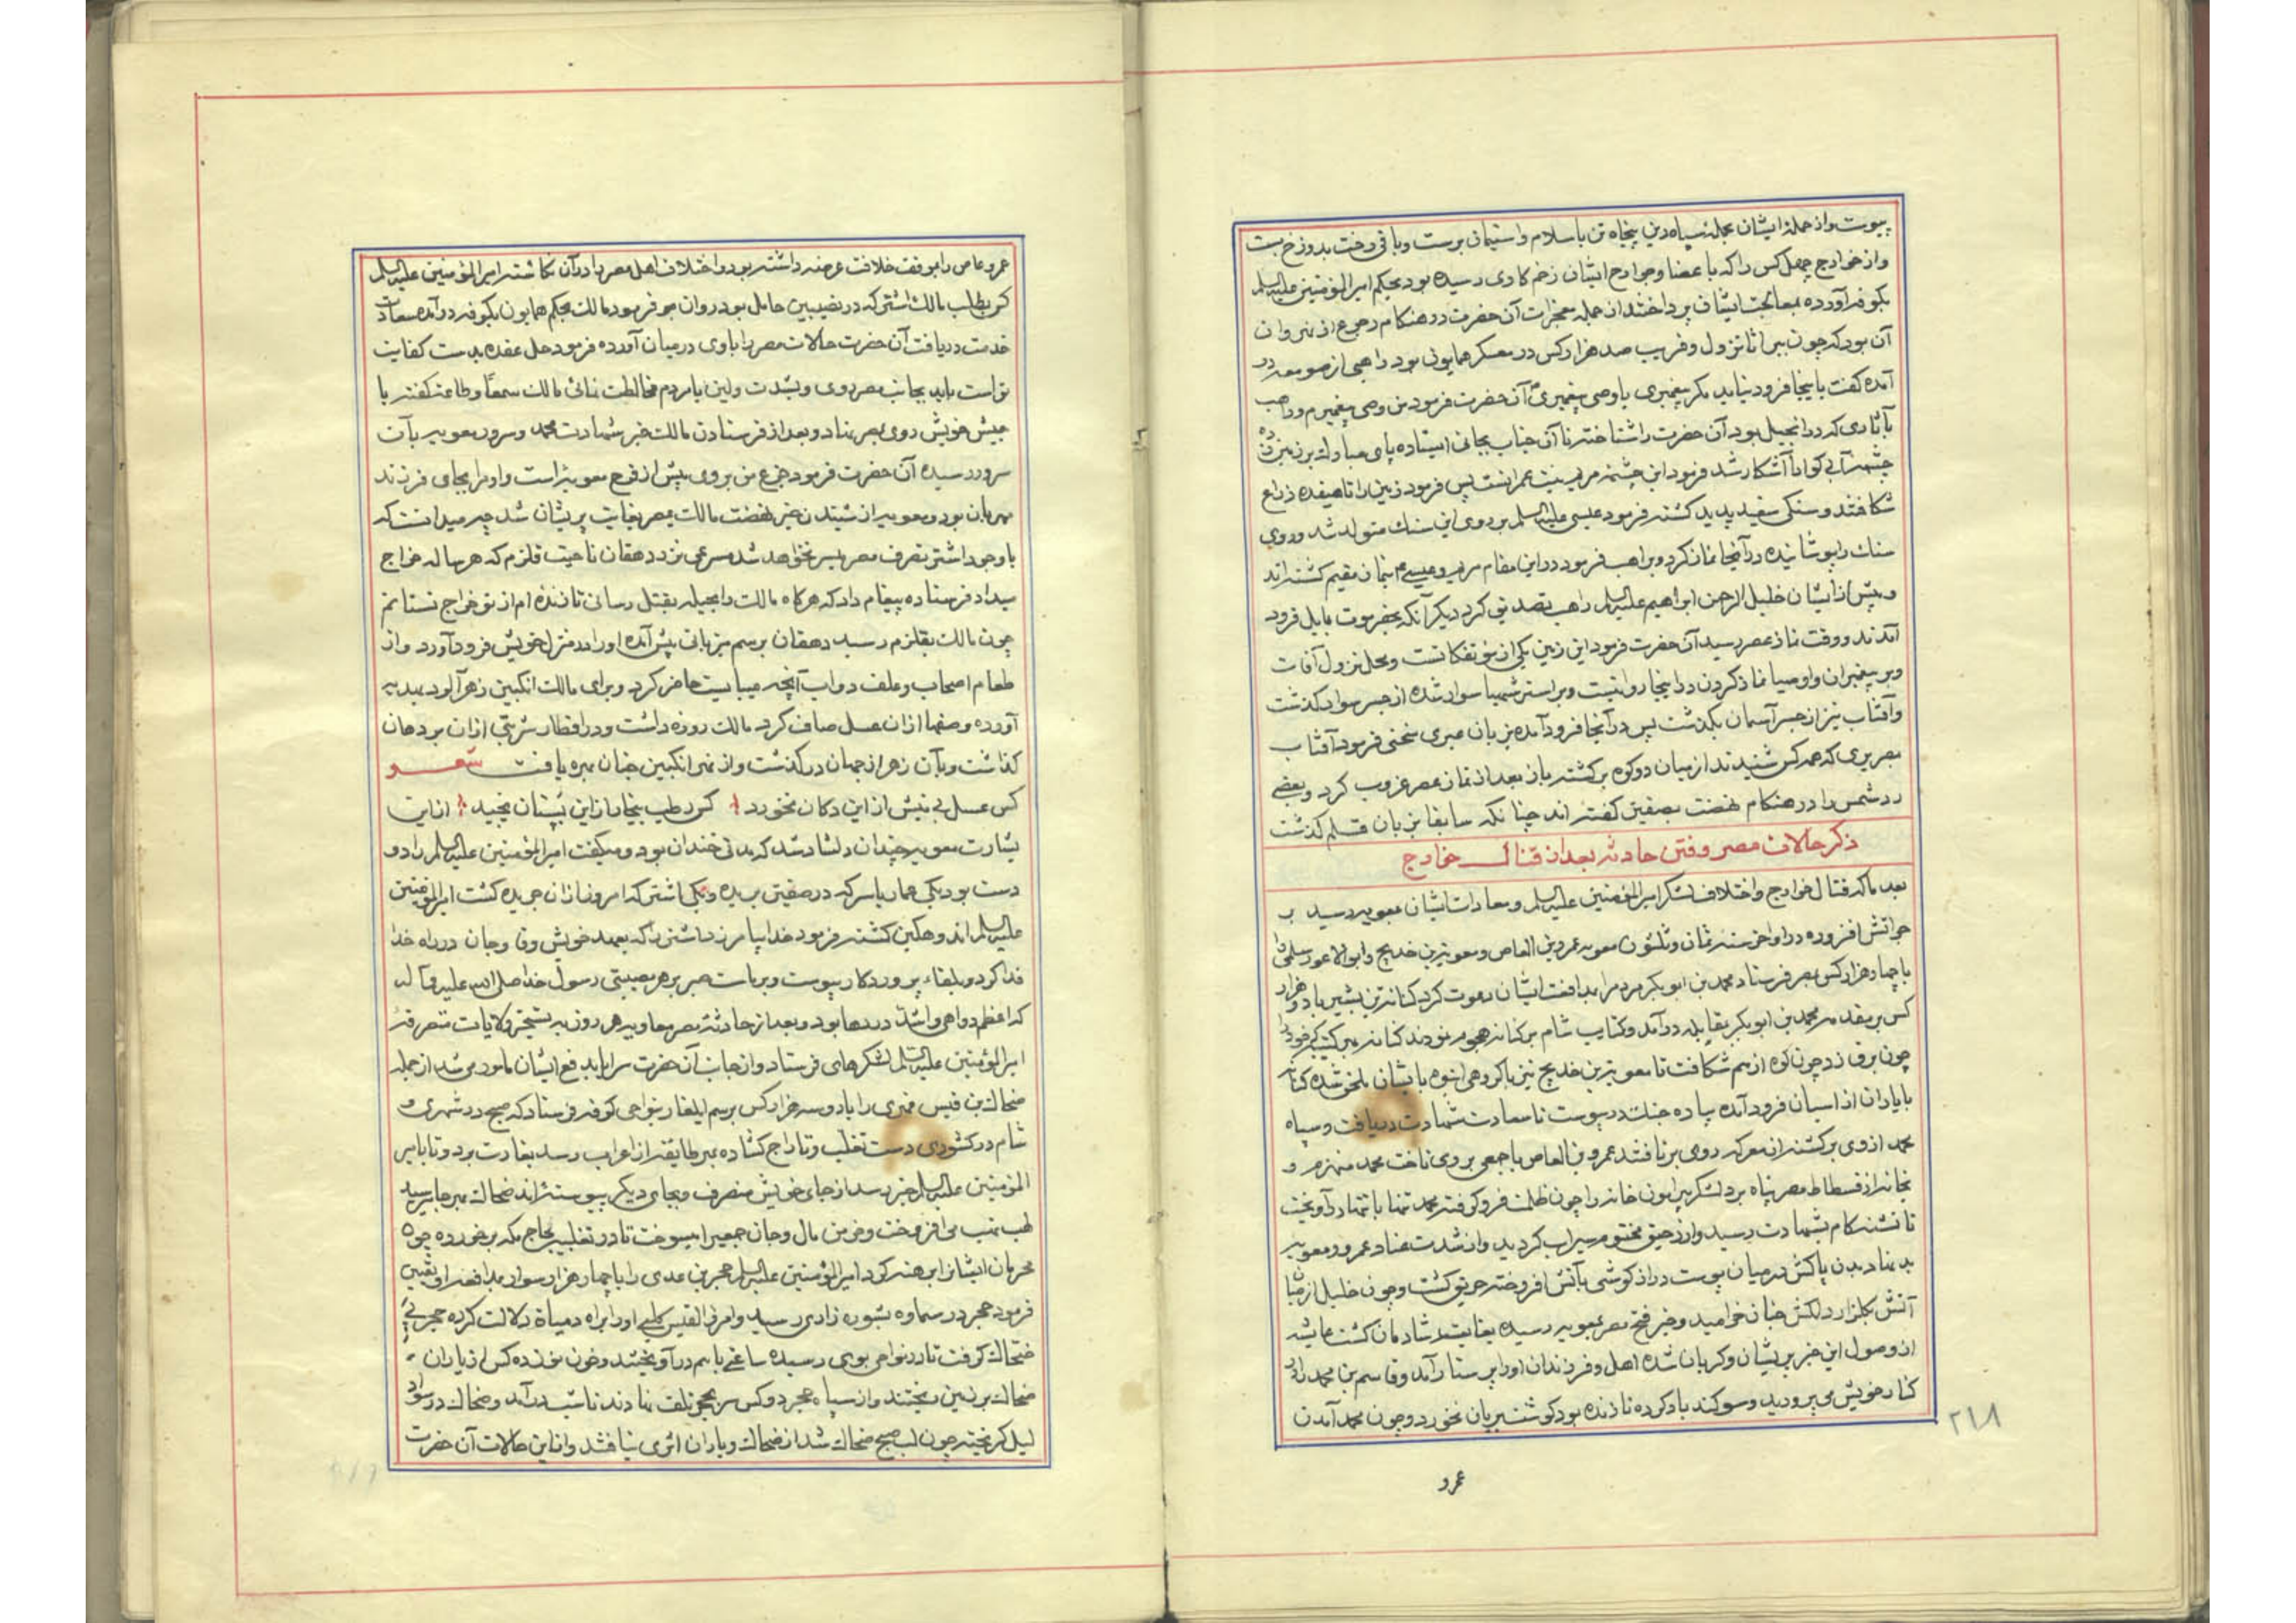 پیوست و از جمله ایشان بجمله سپاه دین پنجاه تن باسلام و استیمان برست و باقی رخت بدوزخ بست
و از خوارج چهل کس را که باعضا و جوارح ایشان زخم کاری رسیده بود بحکم امیرالمؤمنین علیه‌السلم
بکوفه آورده بمعالجت ایشان پرداختند از جمله معجزات آن حضرت در هنکام رجوع از نهروان
آن بود که چون ببراثا نزول و قریب صد هزار کس در معسکر همایونی بود راهبی از صومعه در
آمده کفت باینجا فرود نیاید مکر پیغمبری یا وصی پیغمبری آن حضرت فرمود من وصی پیغمبرم و راهب
بآثاری که در انجیل بود آن حضرت را شناخته تا آن جناب بجائی ایستاده پای مبارک بر زمین زده
چشمه آبی کوارا آشکار شد فرمود این چشمه مریم بنت عمرانست پس فرمود زمین را تا هیفده ذراع
شکافتند و سنکی سفید پدید کشته فرمود عیسی علیه‌السلم بر روی این سنک متولد شد و روی
سنک را پوشانیده در آنجا نماز کرد و براهب فرمود در این مقام مریم و عیسی ۴ بنمان مقیم کشته‌اند
و پیش از ایشان خلیل الرحمن ابراهیم علیه‌السلم راهب تصدیق کرد دیکر آنکه بحضرموت بابل فرود
آمدند و وقت نماز عصر رسید آن حضرت فرمود این زمین یکی از مؤتفکاتست و محل نزول آفات
و بر پیغمبران و اوصیا نماز کردن در اینجا روا نیست و بر استر شهبا سوار شده از جسر سواد کذشت
و آفتاب نیز از جسر آسمان بکذشت پس در آنجا فرود آمده بزبان عبری سخنی فرمود آفتاب
بصریری که همه کس شنیدند از میان دو کوه برکشته باز بعد از نماز عصر غروب کرد و بعضی
رد شمس را در هنکام نهضت بصفین کفته‌اند چنانکه سابقا بزبان قلم کذشت
ذکر حالات مصر و فتن حادثه بعد از قتال خوارج
بعد ما که قتال خوارج و اختلاف لشکر امیرالمؤمنین علیه‌السلم و معادات ایشان بمعویه رسید بر
جرأتش افزوده در اواخر سنه ثمان و ثلثون معویه عمرو بن العاص و معویة بن خدیج و ابوالاعور سلمی را
با چهار هزار کس بمصر فرستاد محمد بن ابو بکر مردم را بمدافعت ایشان دعوت کرد کنانة بن بشیر با دو هزار
کس بر مقدمه محمد بن ابو بکر بمقابله در آمد و کتایب شام بر کنانه هجوم نمودند کنانه هر کتیبه را
چون برق زد چون کوه از هم شکافت تا معویة بن خدیج نیز با کروهی انبوه بایشان ملحق شده کنانه
با یاران از اسبان فرود آمده پیاده جنک در پیوست تا سعادت شهادت دریافت و سپاه
محمد از وی برکشته از معرکه روی برتافتند عمرو بن العاص با جمعی بر وی تاخت محمد منهزم و
بخانه از فسطاط مصر پناه برد لشکر پیرامون خانه را چون ظلمت فرو کوفته محمد تنها با تنها در آویخت
تا تشنه‌کام بشهادت رسید و از رحیق مختوم سیراب کردید و از شدت عناد عمرو و معویه
بد نهاد بدن پاکش در میان پوست دراز کوشی بآتش افروخته حریق کشت و چون خلیل از میان
آتش بکلزار دلکش جنان خرامید و خبر فتح مصر بمعویه رسیده بغایت شادمان کشت عایشه
از وصول این خبر پریشان و کریان شده اهل و فرزندان او را پرستار آمد و قاسم بن محمد را در
کنار خویش می پرورید و سوکند یاد کرده تا زنده بود کوشت بریان نخورد و چون محمد آمدن
۲۱۸
عمرو
عمرو عاص را بموقف خلافت عرضه داشته بود و اختلاف اهل مصر را در آن نکاشته امیرالمؤمنین علیه‌السلم
کس بطلب مالک اشتر که در نصیبین حامل بود روان هم فرمود مالک بحکم همایون بکوفه در آمده سعادت
خدمت دریافت آن حضرت حالات مصر را با وی در میان آورده فرمود حل عقده بدست کفایت
تو است باید بجانب مصر روی و بشدت و لین با مردم مخالطت نمائی مالک سمعاً و طاعة کفته با
جیش خویش روی بمصر نهاد و بعد از فرستادن مالک خبر شهادت محمد و سرور معویه بآن
سرور رسیده آن حضرت فرمود جزع من بر وی بیش از فرح معویه است و او مرا بجای فرزند
مهربان بود و معویه از شنیدن خبر نهضت مالک بمصر بغایت پریشان شد چه میدانست که
با وجود اشتر تصرف مصر میسر نخواهد شد مسرعی نزد دهقان ناحیت قلزم که هر ساله خراج
میداد فرستاده پیغام داد که هرکاه مالک را بحیله بقتل رسانی تا زنده‌ام از تو خراج نستانم
چون مالک بقلزم رسید دهقان برسم میزبانی پیش آمده او را در منزل خویش فرود آورد و از
طعام اصحاب و علف دواب آنچه میبایست حاضر کرد و برای مالک انکبین زهرآلود بهدیه
آورده وصفها از آن عسل صاف کرد مالک روزه داشت و در افطار شربتی از آن بر دهان
کذاشت و بآن زهر از جهان در کذشت و از نهر انکبین جنان بهره یافت شعر
کس عسل بی نیش از این دکان نخورد کس رطب بیخار از این بستان نچید از این
بشارت معویه چندان دلشاد شد که مدتی خندان بود و میکفت امیرالمؤمنین علیه‌السلم را دو
دست بود یکی عمار یاسر که در صفین بریده و یکی اشتر که امروز از آن جریده کشت امیرالمؤمنین
علیه‌السلم اندوهکین کشته فرمود خدا بیامرزد اشتر را که بعهد خویش وفا و جان در راه خدا
فدا کرد و بلقاء پروردکار پیوست و بر ماست صبر بر هر مصیبتی رسول خدا صلی الله علیه و آله
که اعظم دواهی و اشد دردها بود و بعد از حادثه مصر معاویه هر روز به تسخیر ولایات متصرفه
امیرالمؤمنین علیه‌السلم لشکرهای فرستاد و از جانب آن حضرت سرایا بدفع ایشان مأمور می‌شد از جمله
ضحاک بن قیس فهری را با دو سه هزار کس برسم ایلغار بنواحی کوفه فرستاد که صبح در شهری و
شام در کشوری دست تغلب و تاراج کشاده بهر طایفه از اعراب رسد بغارت برد و تا بامیر
المؤمنین علیه‌السلم خبر رسد از جای خویش منصرف و بجای دیکر پیوسته‌اند ضحاک بهر جا رسید
لهب نهب می افروخت و خرمن مال و جان جمعی را میسوخت تا در ثعلبیه بحاج مکه برخورده چون
محرمان ایشانرا برهنه کرد امیرالمؤمنین علیه‌السلم حجر بن عدی را با چهار هزار سوار بمدافعه او تعیین
فرمود حجر در سماوه بشوره‌زاری رسید و امرء القیس کلبی او را براه و میاه دلالت کرده حجر پی
ضحاک کرفت تا در نواحی بوی رسیده ساعتی با هم درآویختند و خون نوزده کس از یاران
ضحاک بر زمین ریختند و از سپاه حجر دو کس سر بمحر تلف نهادند تا شب در آمد و ضحاک در سواد
لیل کریخته چون لب صبح ضحاک شد از ضحاک و یاران اثری نیافتند و از این حالات آن حضرت